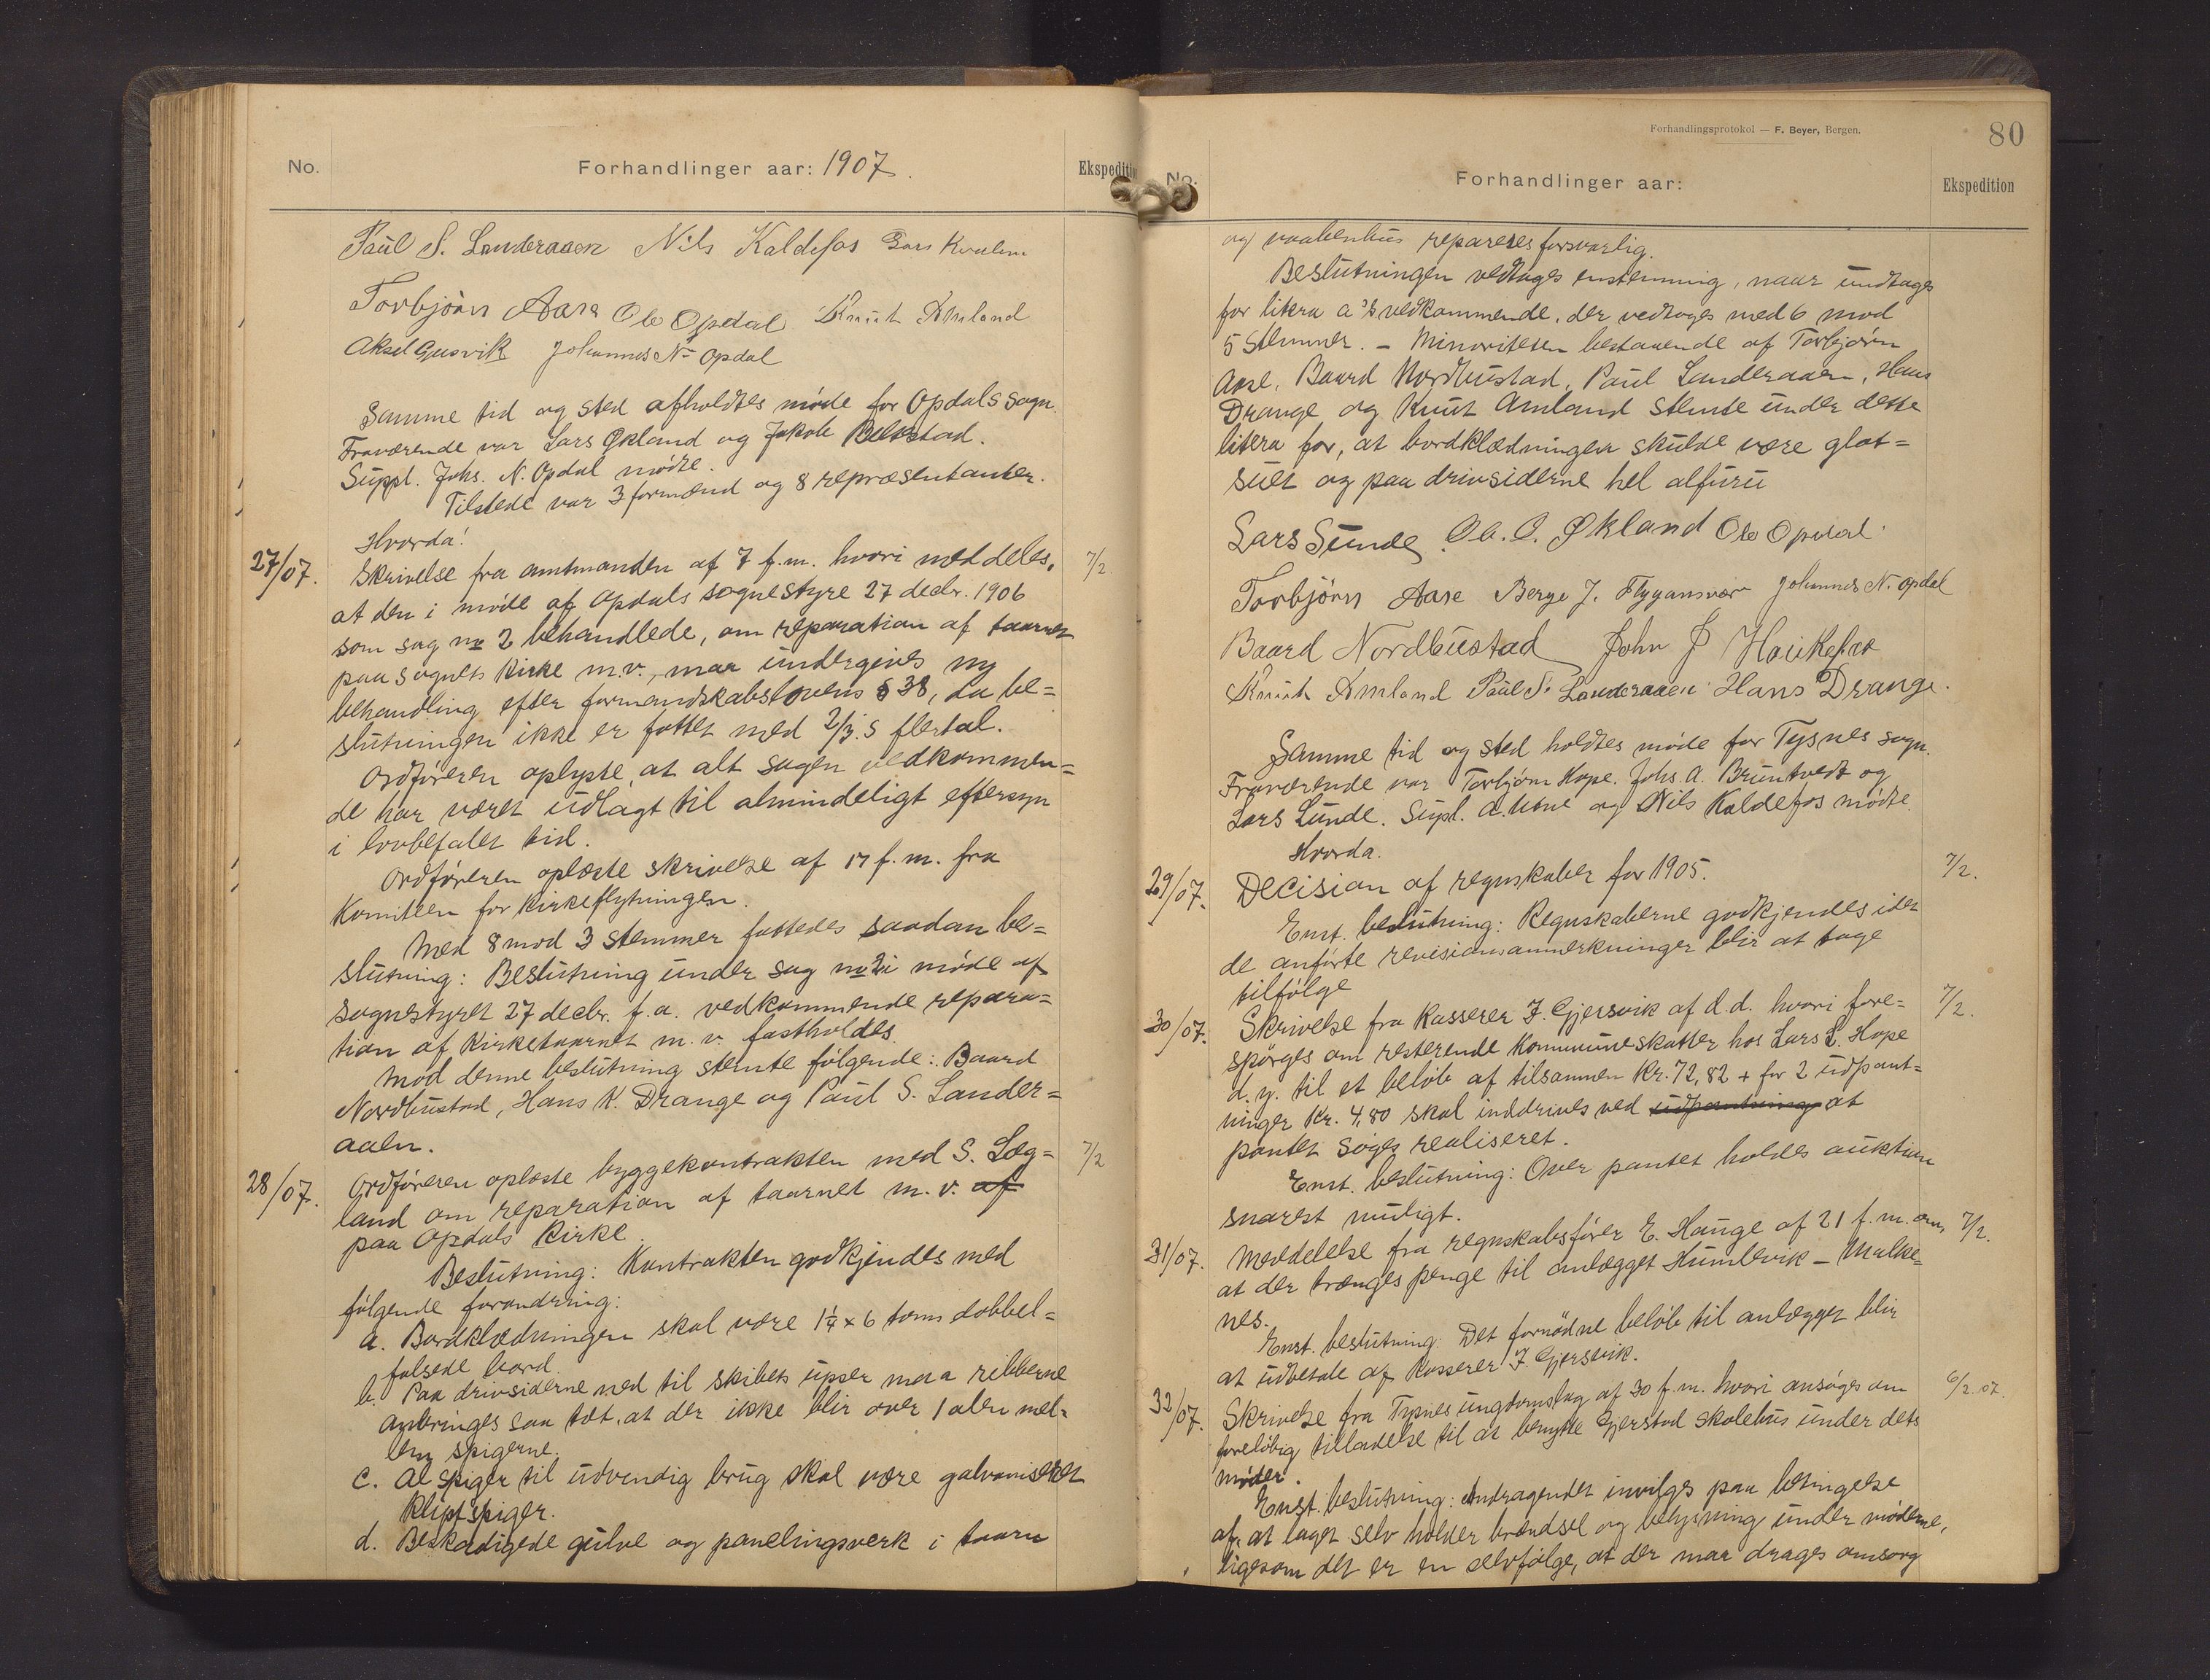 No.
Forhandlinger aar: 1907.
Ekspedition
Paul S. Landeraaen Nils Kaldefos Lars Kvalem
Torbjørn Aase Ole Opdal Knut Amland
Aksel Gusvik Johannes N. Opdal
Samme tid og sted afholdtes møde for Opdals sogn.
Fraværende var Lars Økland og Jakob
Suppl. Johs. N. Opdal mødte.
Tilstede var 3 formænd og 8 repræsentanter.
Hvorda:
27/07. Skrivelse fra amtmanden af 7 f.m. hvori meddeles, 7/2.
at den i møde af Opdals sognestyre 27 decbr. 1906
som sag no 2 behandlede, om reparation af taarnet
paa sognets kirke m.v., maa undergives ny
behandling efter formandskabslovens § 38, da be=
slutningen ikke er fattet med 2/3.s flertal.
Ordføreren oplyste at alt sagen vedkommen=
de har været udlagt til almindeligt eftersyn
i lovbefalet tid.
Ordføreren oplæste skrivelse af 17 f.m. fra
Komiteen for kirkeflytningen.
Med 8 mod 3 stemmer fattedes saadan be=
slutning: Beslutning under sag no 2 i møde af
sognestyret 27 decbr. f.a. vedkommende repara=
tion af kirketaarnet m.v. fastholdes.
Mod denne beslutning stemte følgende: Baard
Nordbustad, Hans K. Drange og Paul S. Lander=
aaen.
28/07. Ordføreren oplæste byggekontrakten med S. Læg= 7/2
land om reparation af taarnet m.v. af
paa Opdals kirke.
Beslutning: Kontrakten godkjendes med
følgende forandring:
a. Bordklædningen skal være 1¼ × 6 toms dobbel=
falsede bord.
b. Paa drivsiderne ned til skibets upser maa ribberne
anbringes saa tæt, at der ikke blir over 1 alen mel=
lem spigerne.
c. Al spiger til udvendig brug skal være galvaniseret
klipt spiger.
d. Beskadigede gulve og panelingsverk i taarn
Forhandlingsprotokol — F. Beyer, Bergen.
80
No.
Forhandlinger aar:
Ekspedition
og vaabenhus repareres forsvarlig.
Beslutningen vedtages enstemmig, naar undtages
for litera a's vedkommende, der vedtoges med 6 mod
5 stemmer. – Minoriteten bestaaende af Torbjørn
Aase, Baard Nordbustad, Paul Landeraaen, Hans
Drange og Knut Amland stemte under dette
litera for, at bordklædningen skulde være glat=
suet og paa drivsiderne hel alfuru
Lars Sunde Ole O. Økland Ole Opdal
Torbjörn Aase Berge J. Flygansvær Johannes N. Opdal
Baard Nordbustad John J Haukefra
Knut Amland Paul S. Landeraaen Hans Drange.
Samme tid og sted holdtes møde for Tysnes sogn.
Fraværende var Torbjørn Hope, Johs. A. Bruntvedt og
Lars Lunde. Supl. A. Utne og Nils Kaldefos mødte.
Hvorda.
29/07. Decision af regnskaber for 1905. 7/2.
Enst. beslutning: Regnskaberne godkjendes idet
de anførte revisionsanmerkninger blir at tage
tilfølge
30/07. Skrivelse fra Kasserer J. Gjersvik af d.d. hvori fore= 7/2.
spørges om resterende Kommuneskatter hos Lars L. Hope
d.y. til et beløb af tilsammen Kr. 72,82 + for 2 udpant=
ninger Kr. 4,80 skal inddrives ved udpantning at
pantet søges realiseret.
Enst. beslutning: Over pantet holdes auktion
snarest muligt.
31/07. Meddelelse fra regnskabsfører E. Hauge af 21 f.m. om, 7/2.
at der trænges penge til anlægget Humlevik – Malke=
nes.
Enst. beslutning: Det fornødne beløb til anlægget blir
at udbetale af Kasserer J. Gjersvik.
32/07. Skrivelse fra Tysnes ungdomslag af 30 f.m. hvori ansøges om 6/2.07.
foreløbig tilladelse til at benytte Gjerstad skolehus under dets
møder.
Enst. beslutning: Andragendet invilges paa betingelse
af, at laget selv holder brændsel og belysning under møderne,
ligesom det er en selvfølge, at der maa drages omsorg